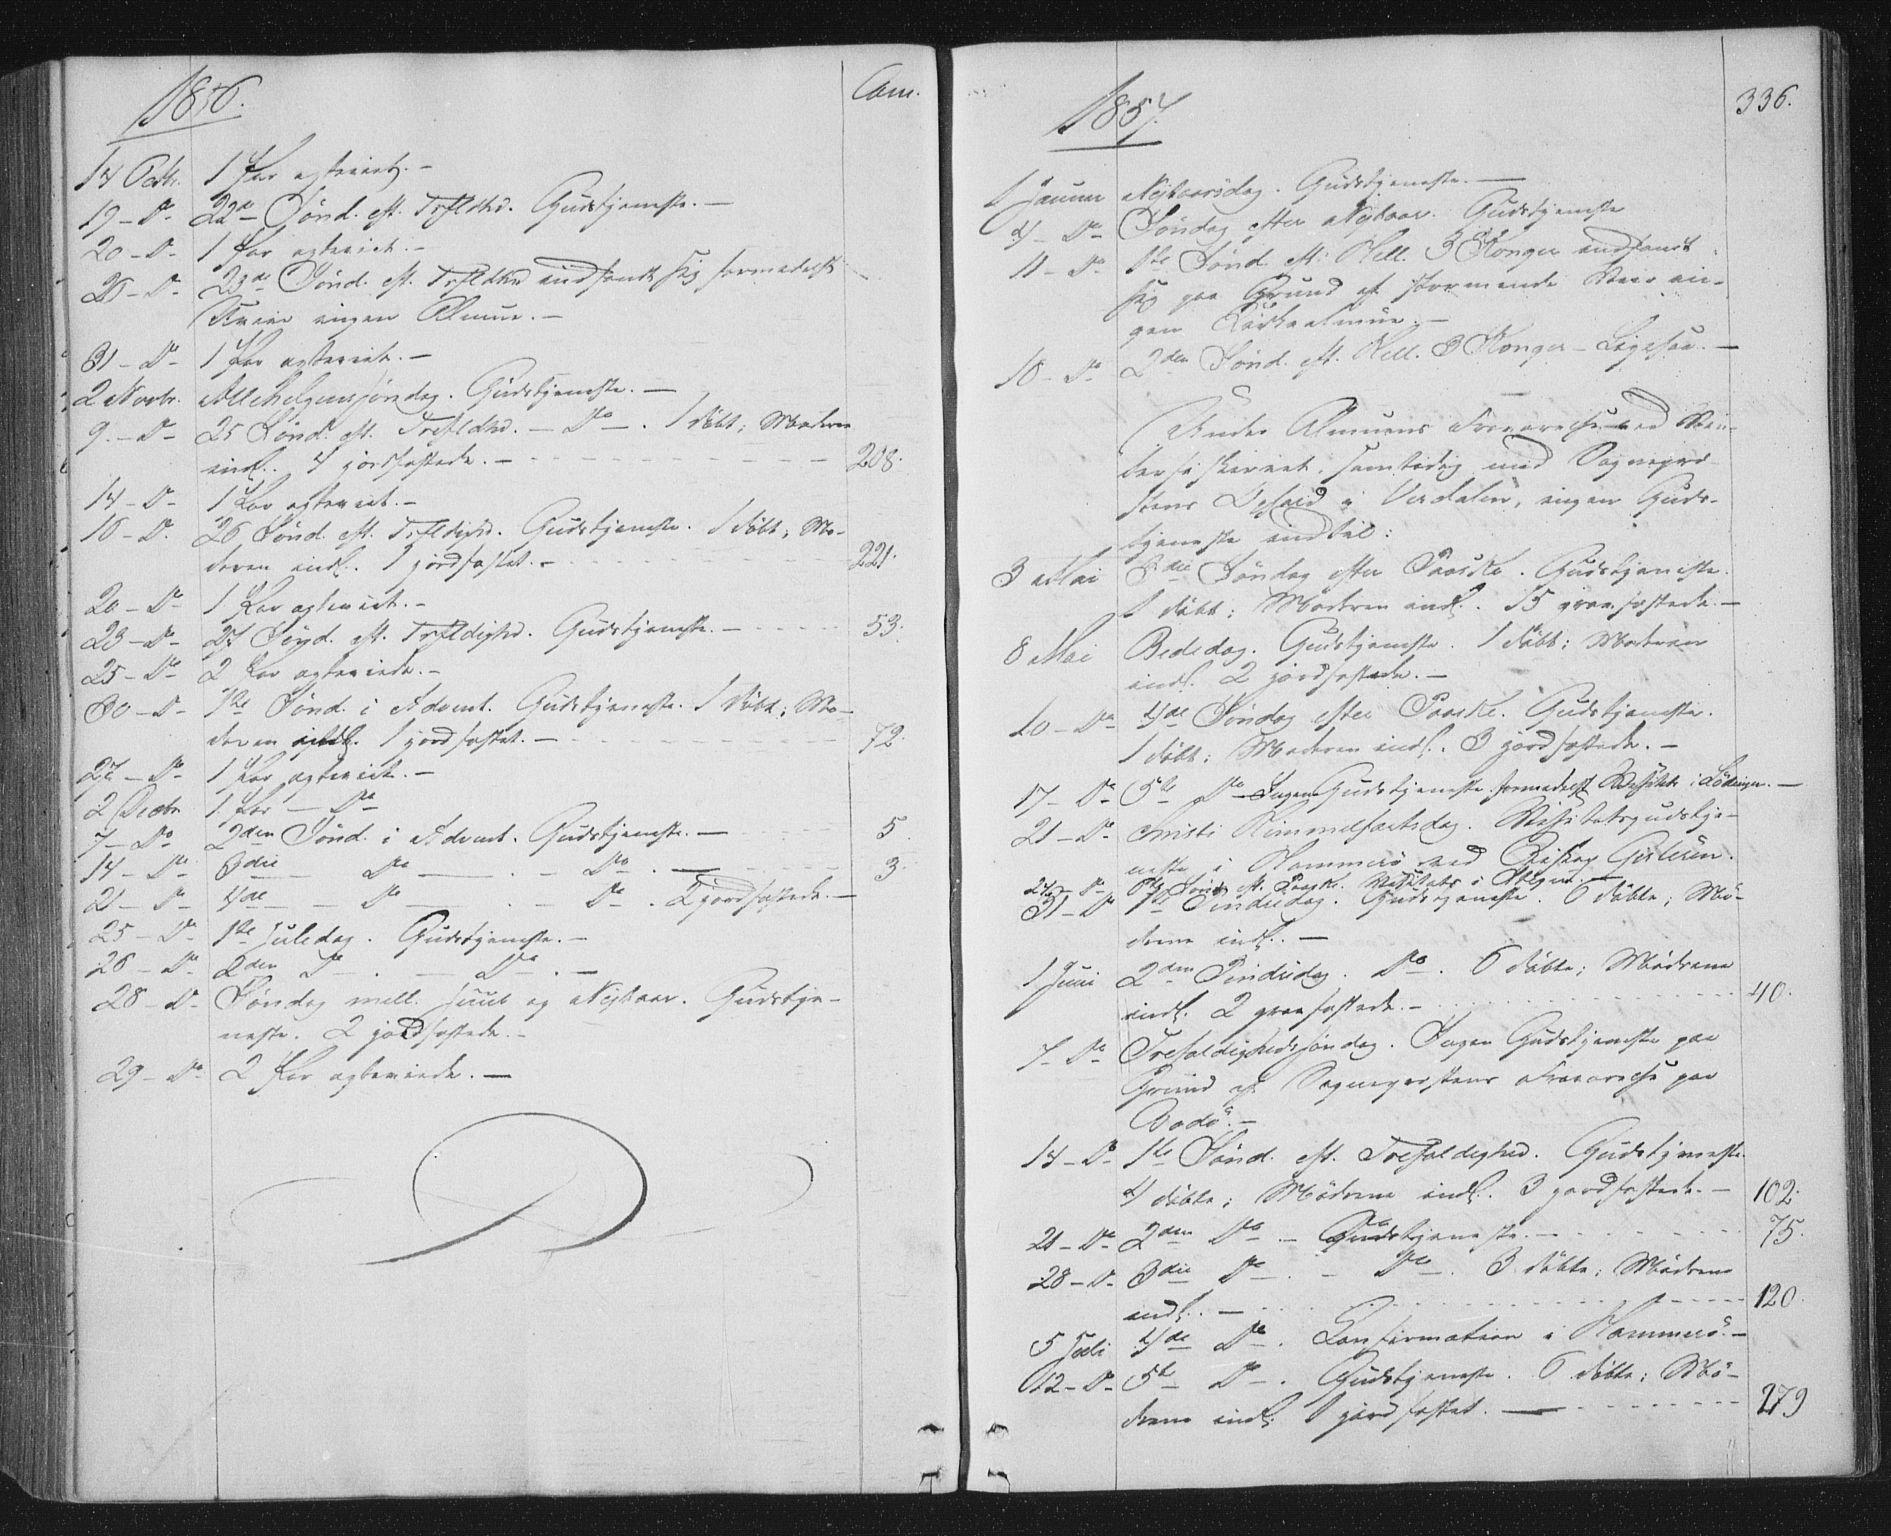 1856.
Com.
14 Octbr. 1 Par ægteviet. –
19 – Do – 22de Sønd. eft. Trefldhd. Gudstjeneste. –
20 – Do – 1 Par ægteviet. –
26 – Do – 23de Sønd. eft. Trefldhd indfandt sig formedelst
ingen Almue. –
31 – Do – 1 Par ægteviet. –
2 Novbr. Allehelgensøndag. Gudstjeneste. –
9. – Do – 25 Sønd. eft. Trefldhd. – Do – . 1 døbt; Moderen
indl. 4 jordfæstede. – 208.
14 – Do – 1 Par ægteviet. –
16 – Do – 26 Sønd. eft. Trefldighd. Gudstjeneste. 1 døbt; Mo-
deren indl. 1 jordfæstet. – 221.
20 – Do – 1 Par ægteviet. –
23 – Do – 27 Sønd. eft. Trefldighd. Gudstjeneste. – 53.
25 – Do – 2 Par ægteviede. –
30 – Do – 1ste Sønd. i Advent. Gudstjeneste. 1 døbt; Mo-
deren indl. 1 jordfæstet. – 72.
27 – Do – 1 Par ægteviet. –
2 Decbr. 1 Par – Do
7 – Do 2den Sønd. i Advent. Gudstjeneste. – 5.
14 – Do 3die – Do – . – Do . – 3.
21 – Do – 4de – – Do – . – Do . 2 jordfæstede. –
25 – Do – 1ste Juledag. Gudstjeneste. –
26 – Do – 2den Do – . – Do . –
28 – Do – Søndag mell. Juul og Nytaar. Gudstje-
neste. 2 jordfæstede. –
29 – Do – 2 Par ægteviede. –
1857.
336.
1 Januar Nytaarsdag. Gudstjeneste. –
4 – Do – Søndag efter Nytaar. Gudstjeneste
11 – Do – 1ste Sønd. eft. Hell. 3 Konger indfandt
sig paa Grund af stormende Veir in-
gen Kirkealmue. –
18 – Do – 2den Sønd. eft. Hell. 3 Konger – Ligesaa. –
Under Almuens Fraværelse ved Vin-
terfiskeriet, samtidig med Sognepræ-
stens Ophold i Verdalen, ingen Guds-
tjeneste indtil:
3 Mai 3die Søndag efter Paaske. Gudstjeneste.
1 døbt; Moderen indl. 15 græsfæstede. –
8 Mai Bededag. Gudstjeneste. 1 døbt; Moderen
indl. 2 jordfæstede. –
10 – Do – 4de Søndag efter Paaske. Gudstjeneste.
1 døbt; Moderen indl. 3 jordfæstede. –
17 – Do – 5te Do – Ingen Gudstjeneste formedelst Visitats i Lødingen. –
21 – Do – Christi Himmelfartsdag. Visitatsgudstje-
neste i Hammerø ved Biskop Gislesen.
24 – Do – 6te Sønd. eft. Paaske. Visitats i
31 – Do 1ste Pindsedag. Gudstjeneste. 6 døbte; Mø-
drene indl. –
1 Juni 2den Pindsedag. Do . 6 døbte; Mødrene
indl. 2 græsfæstede. – 40.
7 – Do Trefoldighedssøndag. Ingen Gudstjeneste paa
Grund af Sognepræstens Fraværelse paa
Bodø. –
14 – Do – 1ste Sønd. eft. Trefoldighed. Gudstjeneste.
4 døbte; Mødrene indl. 3 jordfæstede. – 102.
21 – Do – 2den Do . – Gudstjeneste. – 75.
28 – Do – 3die Do – . – Do – . 3 døbte; Mødrene
indl. – 120.
5 Juli 4de Do – . Confirmation i Hammerø. –
12 – Do – 5te Do – . Gudstjeneste. 6 døbte; Mø-
drene indl; 1 jordfæstet. – 279